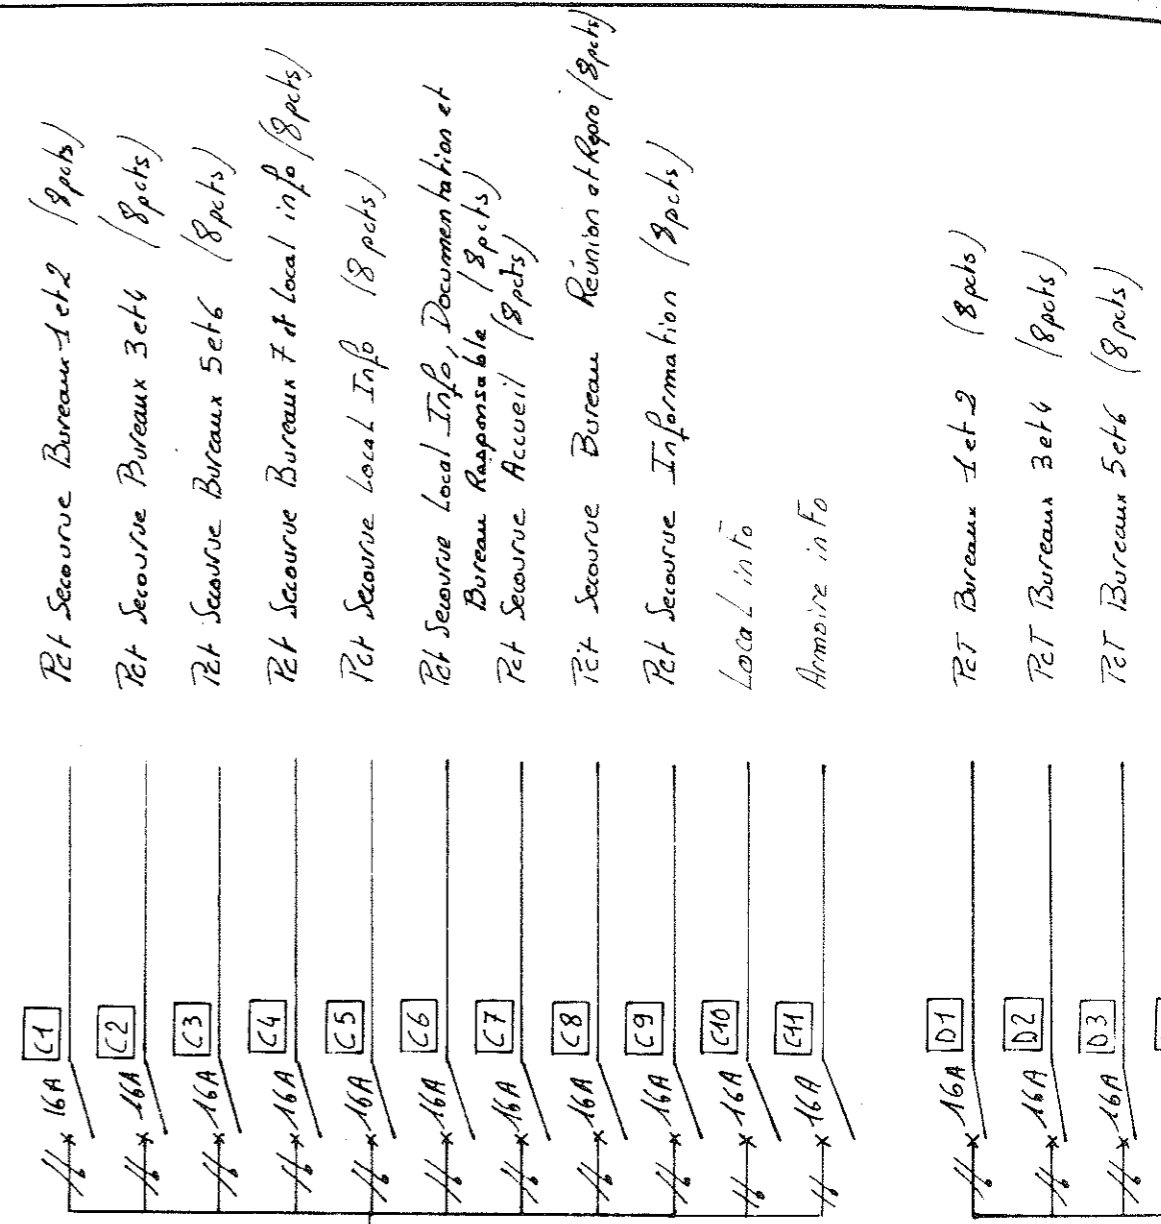 16A C1 Pct Secourue Bureaux 1 et 2 (8 pcts)
16A C2 Pct Secourue Bureaux 3 et 4 (8 pcts)
16A C3 Pct Secourue Bureaux 5 et 6 (8 pcts)
16A C4 Pct Secourue Bureaux 7 et Local info (8 pcts)
16A C5 Pct Secourue Local Info (8 pcts)
16A C6 Pct Secourue Local Info, Documentation et
Bureau Responsable (8 pcts)
16A C7 Pct Secourue Accueil (8 pcts)
16A C8 Pct Secourue Bureau Réunion et Repro (8 pcts)
16A C9 Pct Secourue Information (8 pcts)
16A C10 Local info
16A C11 Armoire info
16A D1 PcT Bureaux 1 et 2 (8 pcts)
16A D2 PcT Bureaux 3 et 4 (8 pcts)
16A D3 PcT Bureaux 5 et 6 (8 pcts)